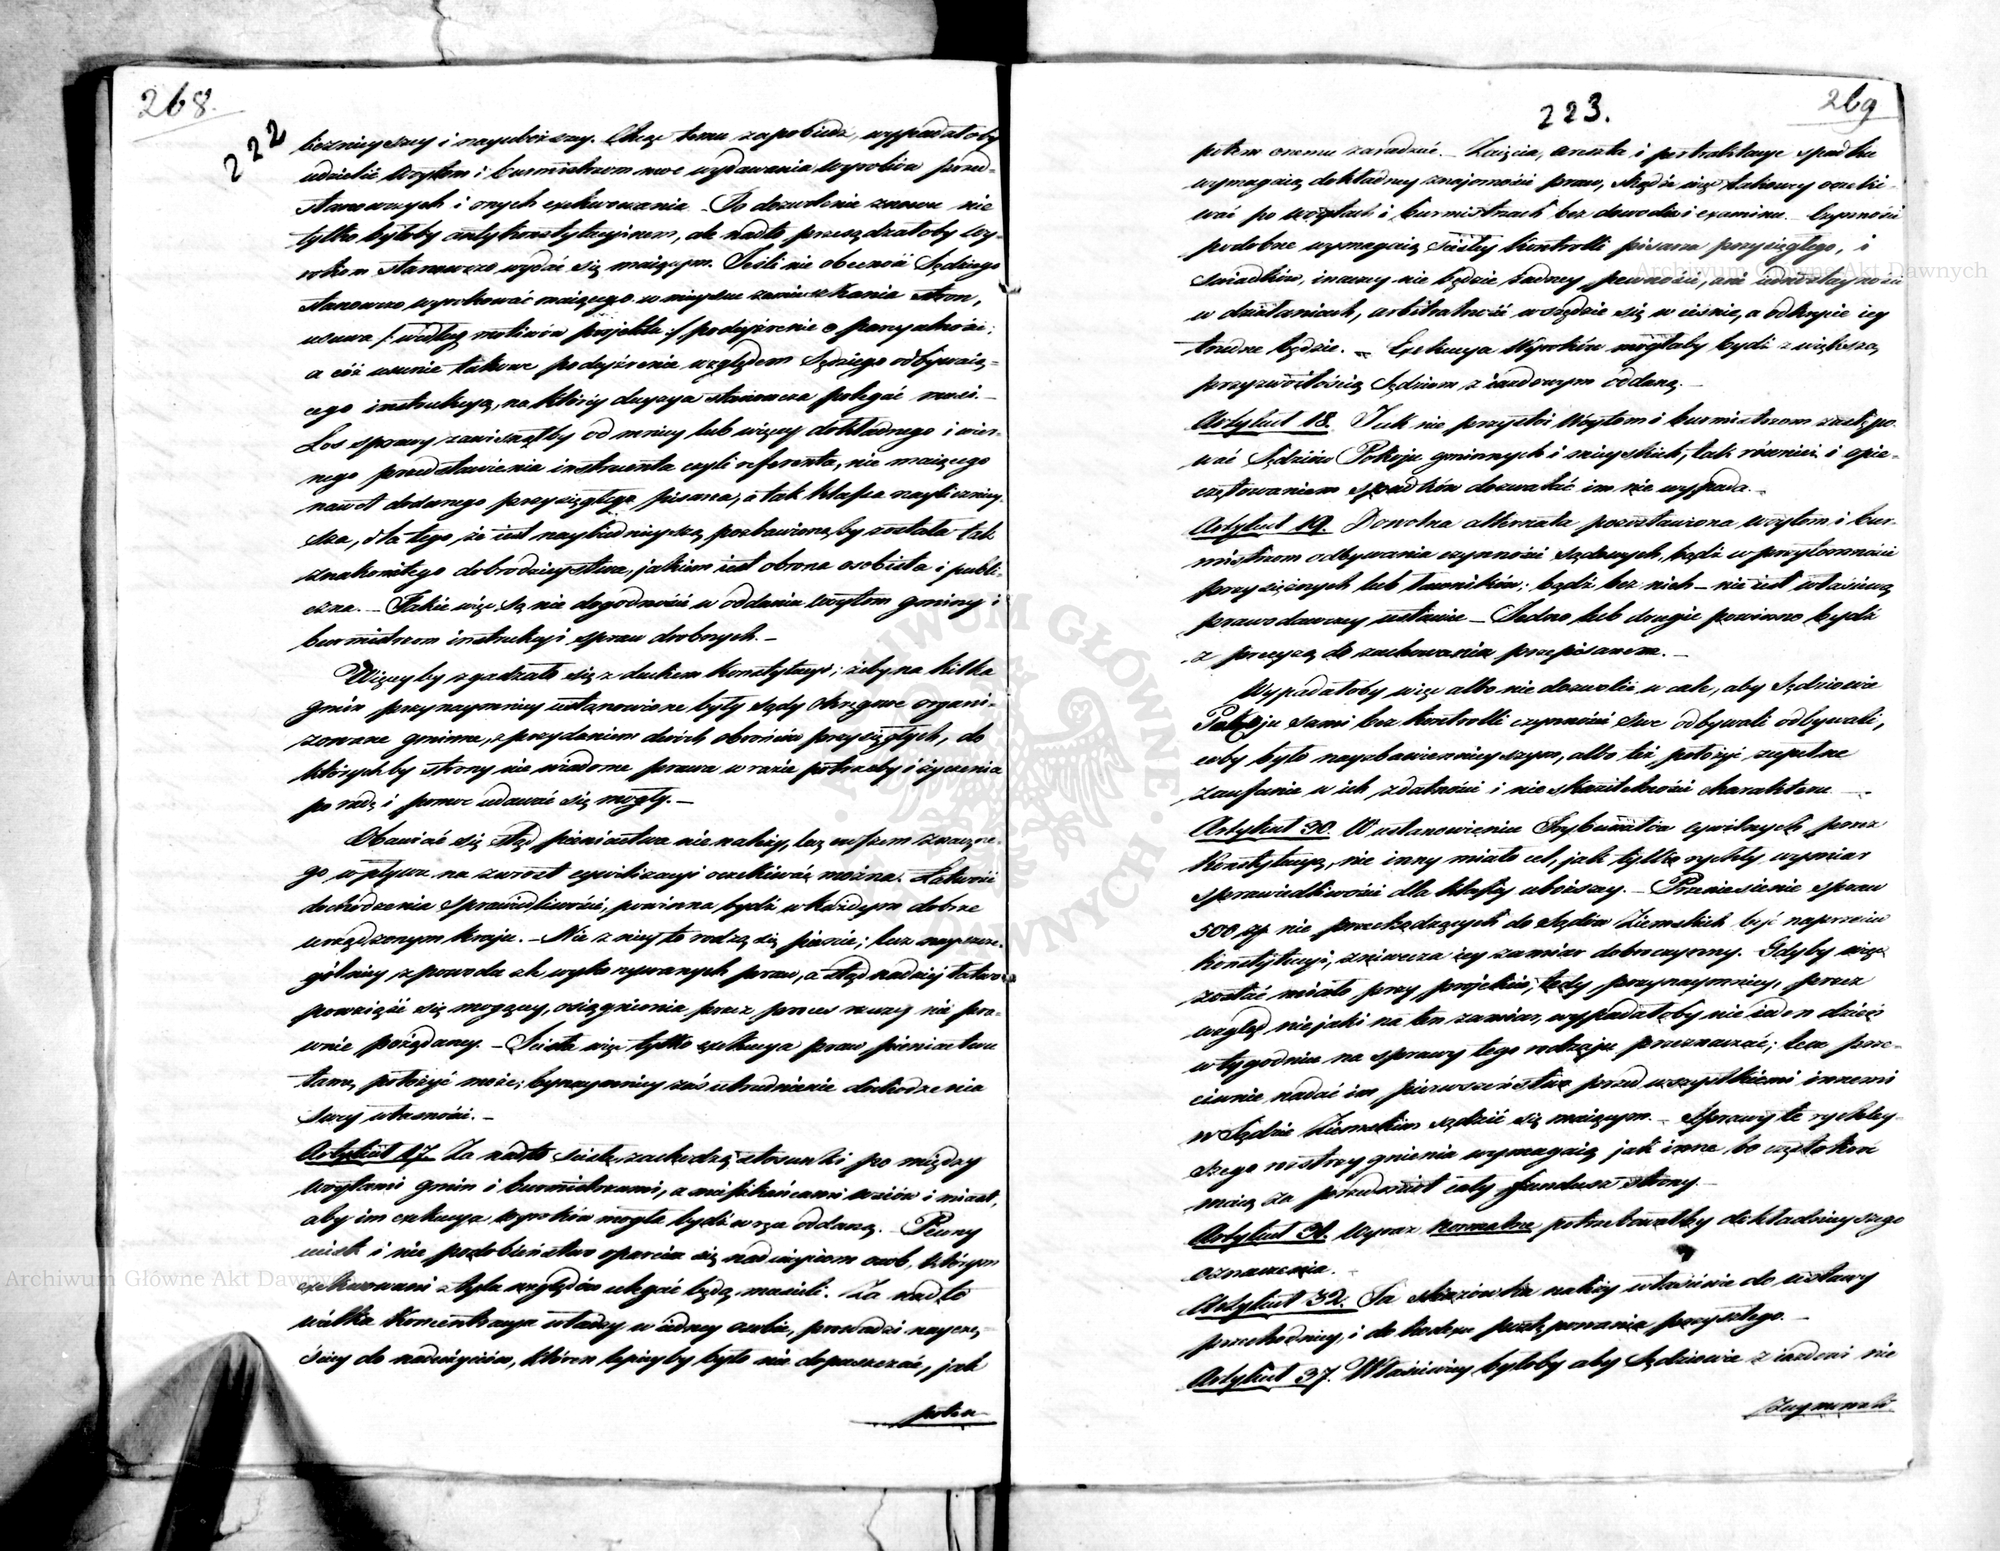 268.
222
licznieyszey i nayuboższey. Chcąc temu zapobiedz, wypadałoby
udzielić Woytom i burmistrzom moc wydawania wyroków przed-
stanowczych i onych exekwowania. To dozwolenie znowu nie
tylko byłoby antykonstytucyinem, ale nadto przesądzałoby wy-
rokom stanowczo wydać się maiącym. Jeśli nie obecność Sędziego
stanowczo wyrokować maiącego w mieyscu zamieszkania stron,
usuwa /: według motiwów projektu :/ podeyźrenie o parcyalności;
a cóż usunie takowe podeyźrenie względem Sędziego odbywaią-
cego instrukcyą, na którey decyzya stanowcza polegać musi.
Los sprawy zawisnąłby od mniey lub więcey dokładnego i wier-
nego przedstawienia instruenta czyli referenta, nie maiącego
nawet dodanego przysięgłego pisarza, a tak klassa naylicznieysza
sza, dla tego że iest naybiednieyszą pozbawioną by została tak
znakomitego dobrodzieystwa, jakiem iest obrona osobista i publi-
czna. – Takie więc są nie dogodności w oddaniu woytom gminy i
burmistrzom instrukcyi spraw drobnych. –
Więcey by zgadzało się z duchem Konstytucyi; żeby na kilka
gmin przynaymniey ustanowione były sądy okręgowe organi-
zowane gminne, z przydaniem dwóch obrońców przysięgłych, do
których by strony nie wiadome prawa w razie potrzeby i życzenia
po radę i pomoc udawać się mogły. –
Obawiać się stąd pieniactwa nie należy, lecz owszem znaczne-
go wpływu na zwrost cywilizacyi oczekiwać można. Łatwość
dochodzenia sprawiedliwości, powinna bydź w każdym dobrze
urządzonym kraju. – Nie z niey to rodzą się pienie; lecz nayszcze-
gólniey z powodu złe wykonywanych praw, a stąd nadziei łatwo
powziąść się mogącey, osiągnienia przez proces rzeczy nie pra-
wnie pożądaney. – Ścisła więc tylko exekucya praw pieniactwu
tamę położyć może; bynaymniey zaś utrudnienie dochodzenia
swey własności. –
Artykuł 17. Za nadto ścisłe zachodzą stosunki po między
woytami gmin i burmistrzami, a mieszkańcami wsiów i miast,
aby im exekucya wyroków mogła bydź w ręce oddaną. Pewny
ucisk i nie podobieństwo oparcia się nadużyciom osob, którym
exekwowani z tylu względów ulegać będą musieli. Za nadto
wielka koncentracya władzy w iedney osobie, prowadzi nayczę-
ściey do nadużyciów, którem lepiey by było nie dopuszczać, jak
potem
223.
269
potem onemu zaradzać. – Zaięcia, areszta i pertraktacye spadku
wymagaią dokładney znajomości praw, skądże więc takowey oczeki-
wać po woytach i burmistrzach bez dowodu i examinu. Czynności
podobne wymagaią ścisłey kontrolli pisarza przysięgłego, i
świadków, inaczey nie będzie żadney pewności, ani iednostayności
w działaniach, arbitralność wszędzie się w ciśnie, a odkrycie iey
trudne będzie. – Exekucya Wyroków mogłaby bydź z większą
przyzwoitością Sędziom zjazdowym oddaną. –
Artykuł 18. Jak nie przystoi Woytom i burmistrzom zastępo-
wać Sędziów Pokoju gminnych i mieyskich, tak również i opie-
czętowaniem spadków dozwalać im nie wypada. –
Artykuł 19. Dowolna alternata pozostawiona woytom i bur-
mistrzom odbywania czynności sądowych, bądź w przytomności
przysiężnych lub ławników; bądź bez nich – nie iest właściwą
prawodawczey ustawie – Jedno lub drugie powinno bydź
z precyzą do zachowania przepisanem. –
Wypadałoby więc albo nie dozwolić w cale, aby Sędziowie
Pokoju sami bez kontrolli czynności swe odbywali odbywali,
coby było nayzbawiennieyszym, albo też, położyć zupełne
zaufanie w ich zdatności i nieskazitelności charakteru –
Artykuł 30. W ustanowieniu Trybunałów cywilnych przez
Konstytucyą, nie inny miało cel, jak tylko rychły wymiar
sprawiedliwości dla klassy uboższey. – Przeniesienie spraw
500 zp nie przechodzących do Sądów Ziemskich być naprzeciw
Konstytucyi, zniweczа iey zamiar dobroczynny. Gdyby więc
zostać miało przy projekcie, tedy przynaymniey, przez
wzgląd niejaki na ten zamiar, wypadałoby nie ieden dzień
w tygodniu na sprawy tego rodzaju przeznaczać; lecz prze-
ciwnie nadać im pierwszeństwo przed wszystkiemi innemi
w Sądzie Ziemskim sądzić się maiącym. – Sprawy te rychley-
szego rostrzygnienia wymagaią jak inne bo częstokroć
maią za przedmiot cały fundusz strony. –
Artykuł 31. Wyraz normalne potrzebowałby dokładnieyszego
oznaczenia. –
Artykuł 32. Ta skazówka należy właściwie do ustawy
przechodniey, i do kodexu postępowania przyszłego. –
Artykuł 37. Właściwiey byłoby aby Sędziowie zjazdowi nie